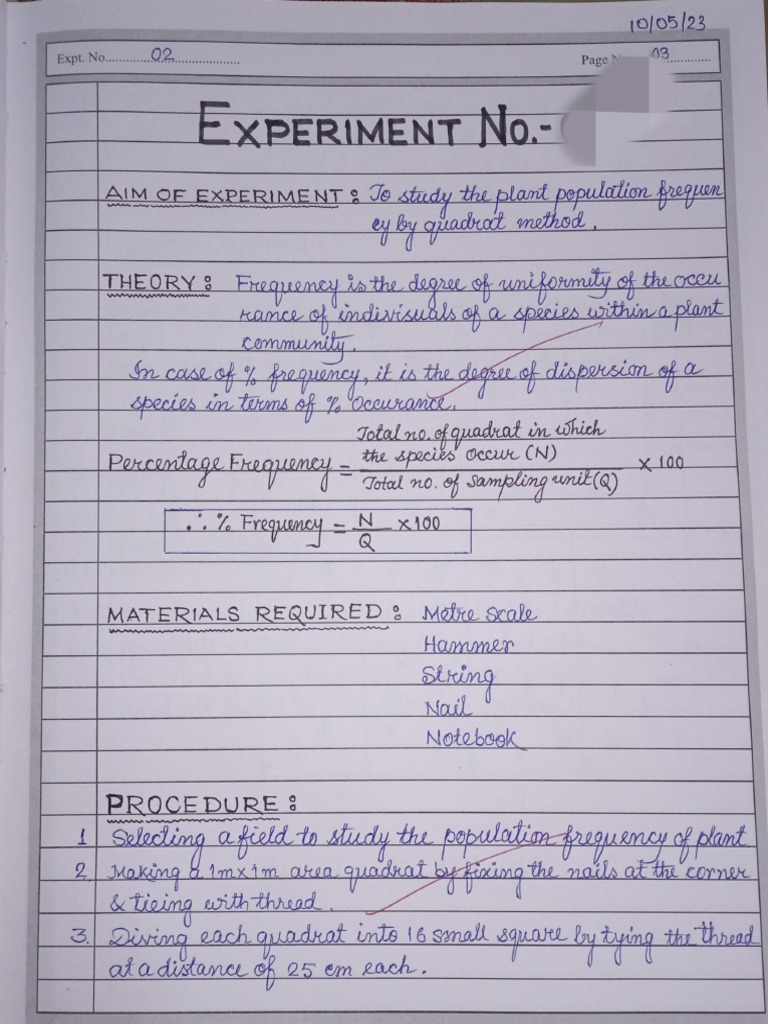 10/05/23
Expt. No. 02
Page N 03
EXPERIMENT NO.-
AIM OF EXPERIMENT : To study the plant population frequen
cy by quadrat method.
THEORY : Frequency is the degree of uniformity of the occu
rance of indivisuals of a species within a plant
community.
In case of % frequency, it is the degree of dispersion of a
species in terms of % occurance.
Total no. of quadrat in which
the species occur (N)
Percentage Frequency = × 100
Total no. of sampling unit (Q)
∴ % Frequency = N/Q ×100
MATERIALS REQUIRED : Metre scale
Hammer
String
Nail
Notebook
PROCEDURE :
1 Selecting a field to study the population frequency of plant
2. Making a 1m×1m area quadrat by fixing the nails at the corner
& tieing with thread.
3. Diving each quadrat into 16 small square by tying the thread
at a distance of 25 cm each.